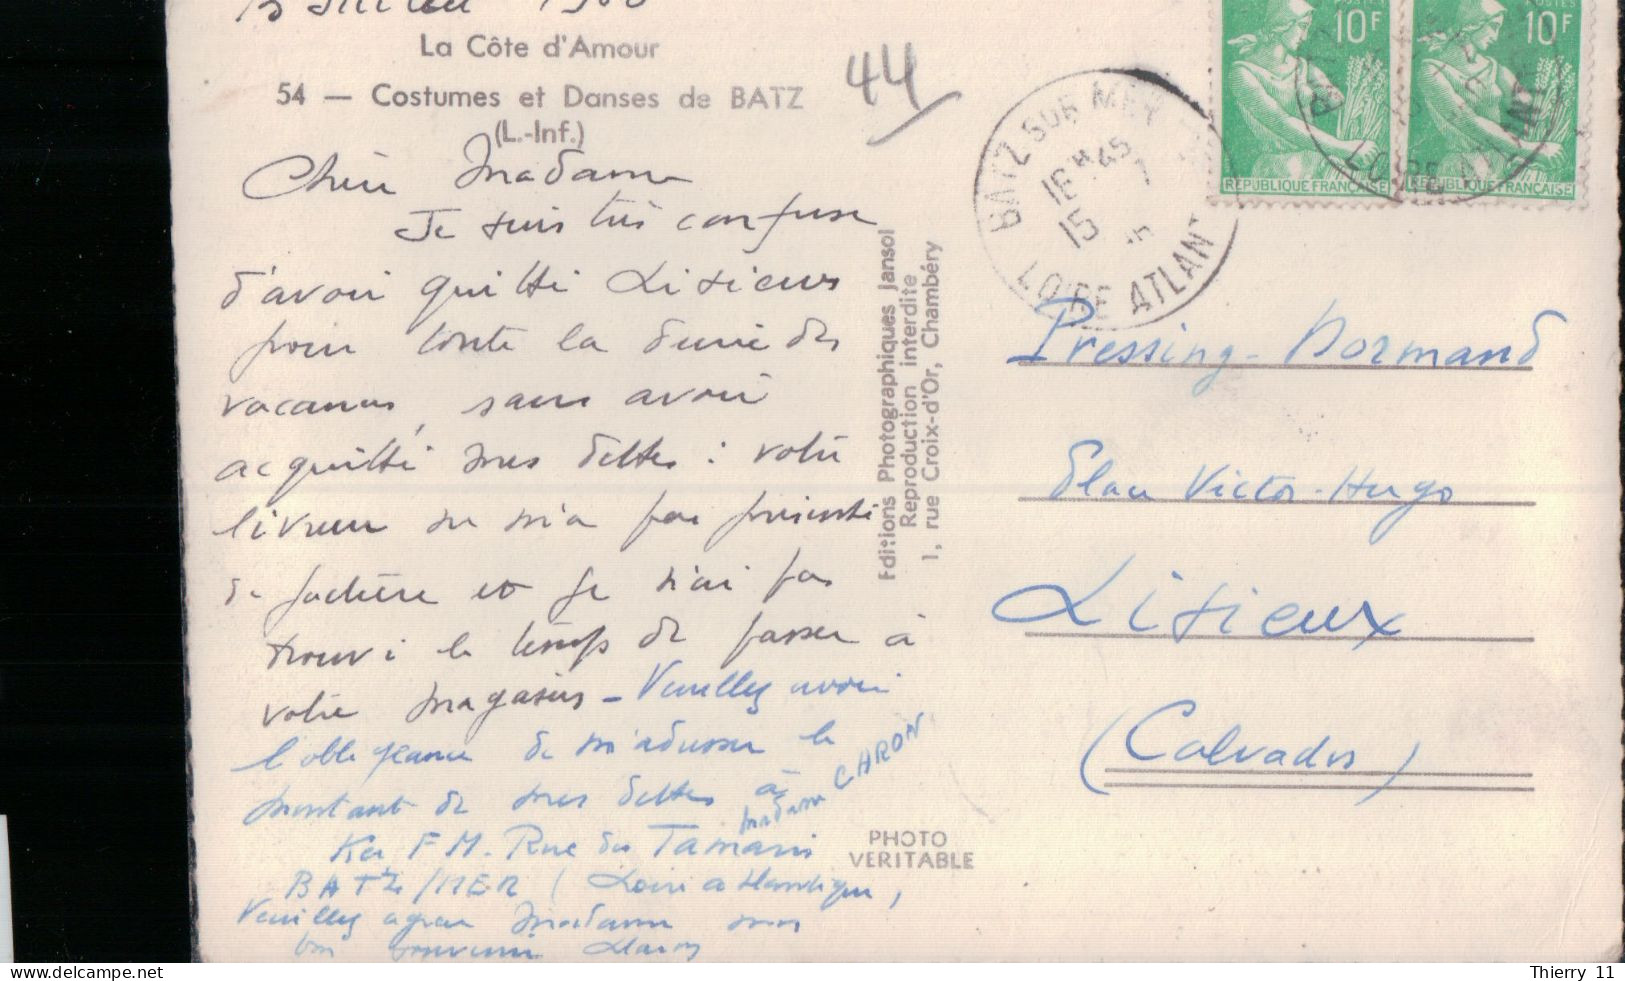 15 Juillet 1960
La Côte d'Amour
54 — Costumes et Danses de BATZ
(L.-Inf.)
44
Chère Madame
Je suis très confuse
d'avoir quitté Lisieux
pour toute la durée des
vacances, sans avoir
acquitté mes dettes : votre
livreur ne m'a pas présenté
de facture et je n'ai pas
trouvé le temps de passer à
votre magasin - Veuillez avoir
l'obligeance de m'adresser le
montant de mes dettes à
Madame CHARON
Ker F M. Rue des Tamaris
BATZ/MER (Loire atlantique,
Veuillez agréer Madame mon
bon souvenir
Editions Photographiques Jansol
Reproduction interdite
1, rue Croix-d'Or, Chambéry
PHOTO
VERITABLE
BATZ SUR MER
16H45
15
LOIRE ATLANT
POSTES
10F
REPUBLIQUE FRANÇAISE
POSTES
10F
REPUBLIQUE FRANÇAISE
LOIRE ATLANT
Pressing-Normand
Place Victor-Hugo
Lisieux
(Calvados)
Thierry 11